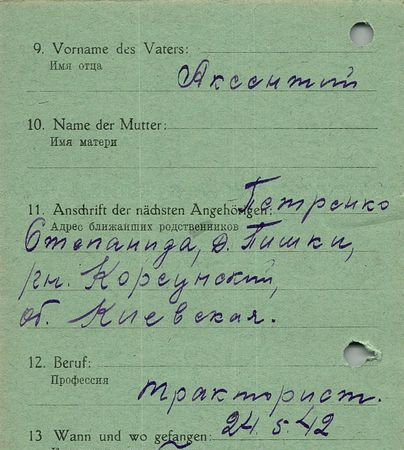 9. Vorname des Vaters:
Имя отца
Аксентий
10. Name der Mutter:
Имя матери
11. Anschrift der nächsten Angehörigen: Петренко
Адрес ближайших родственников
Степанида, д. Пишки,
рн. Корсунский,
об. Киевская.
12. Beruf:
Профессия
тракторист.
13 Wann und wo gefangen: 24.5.42